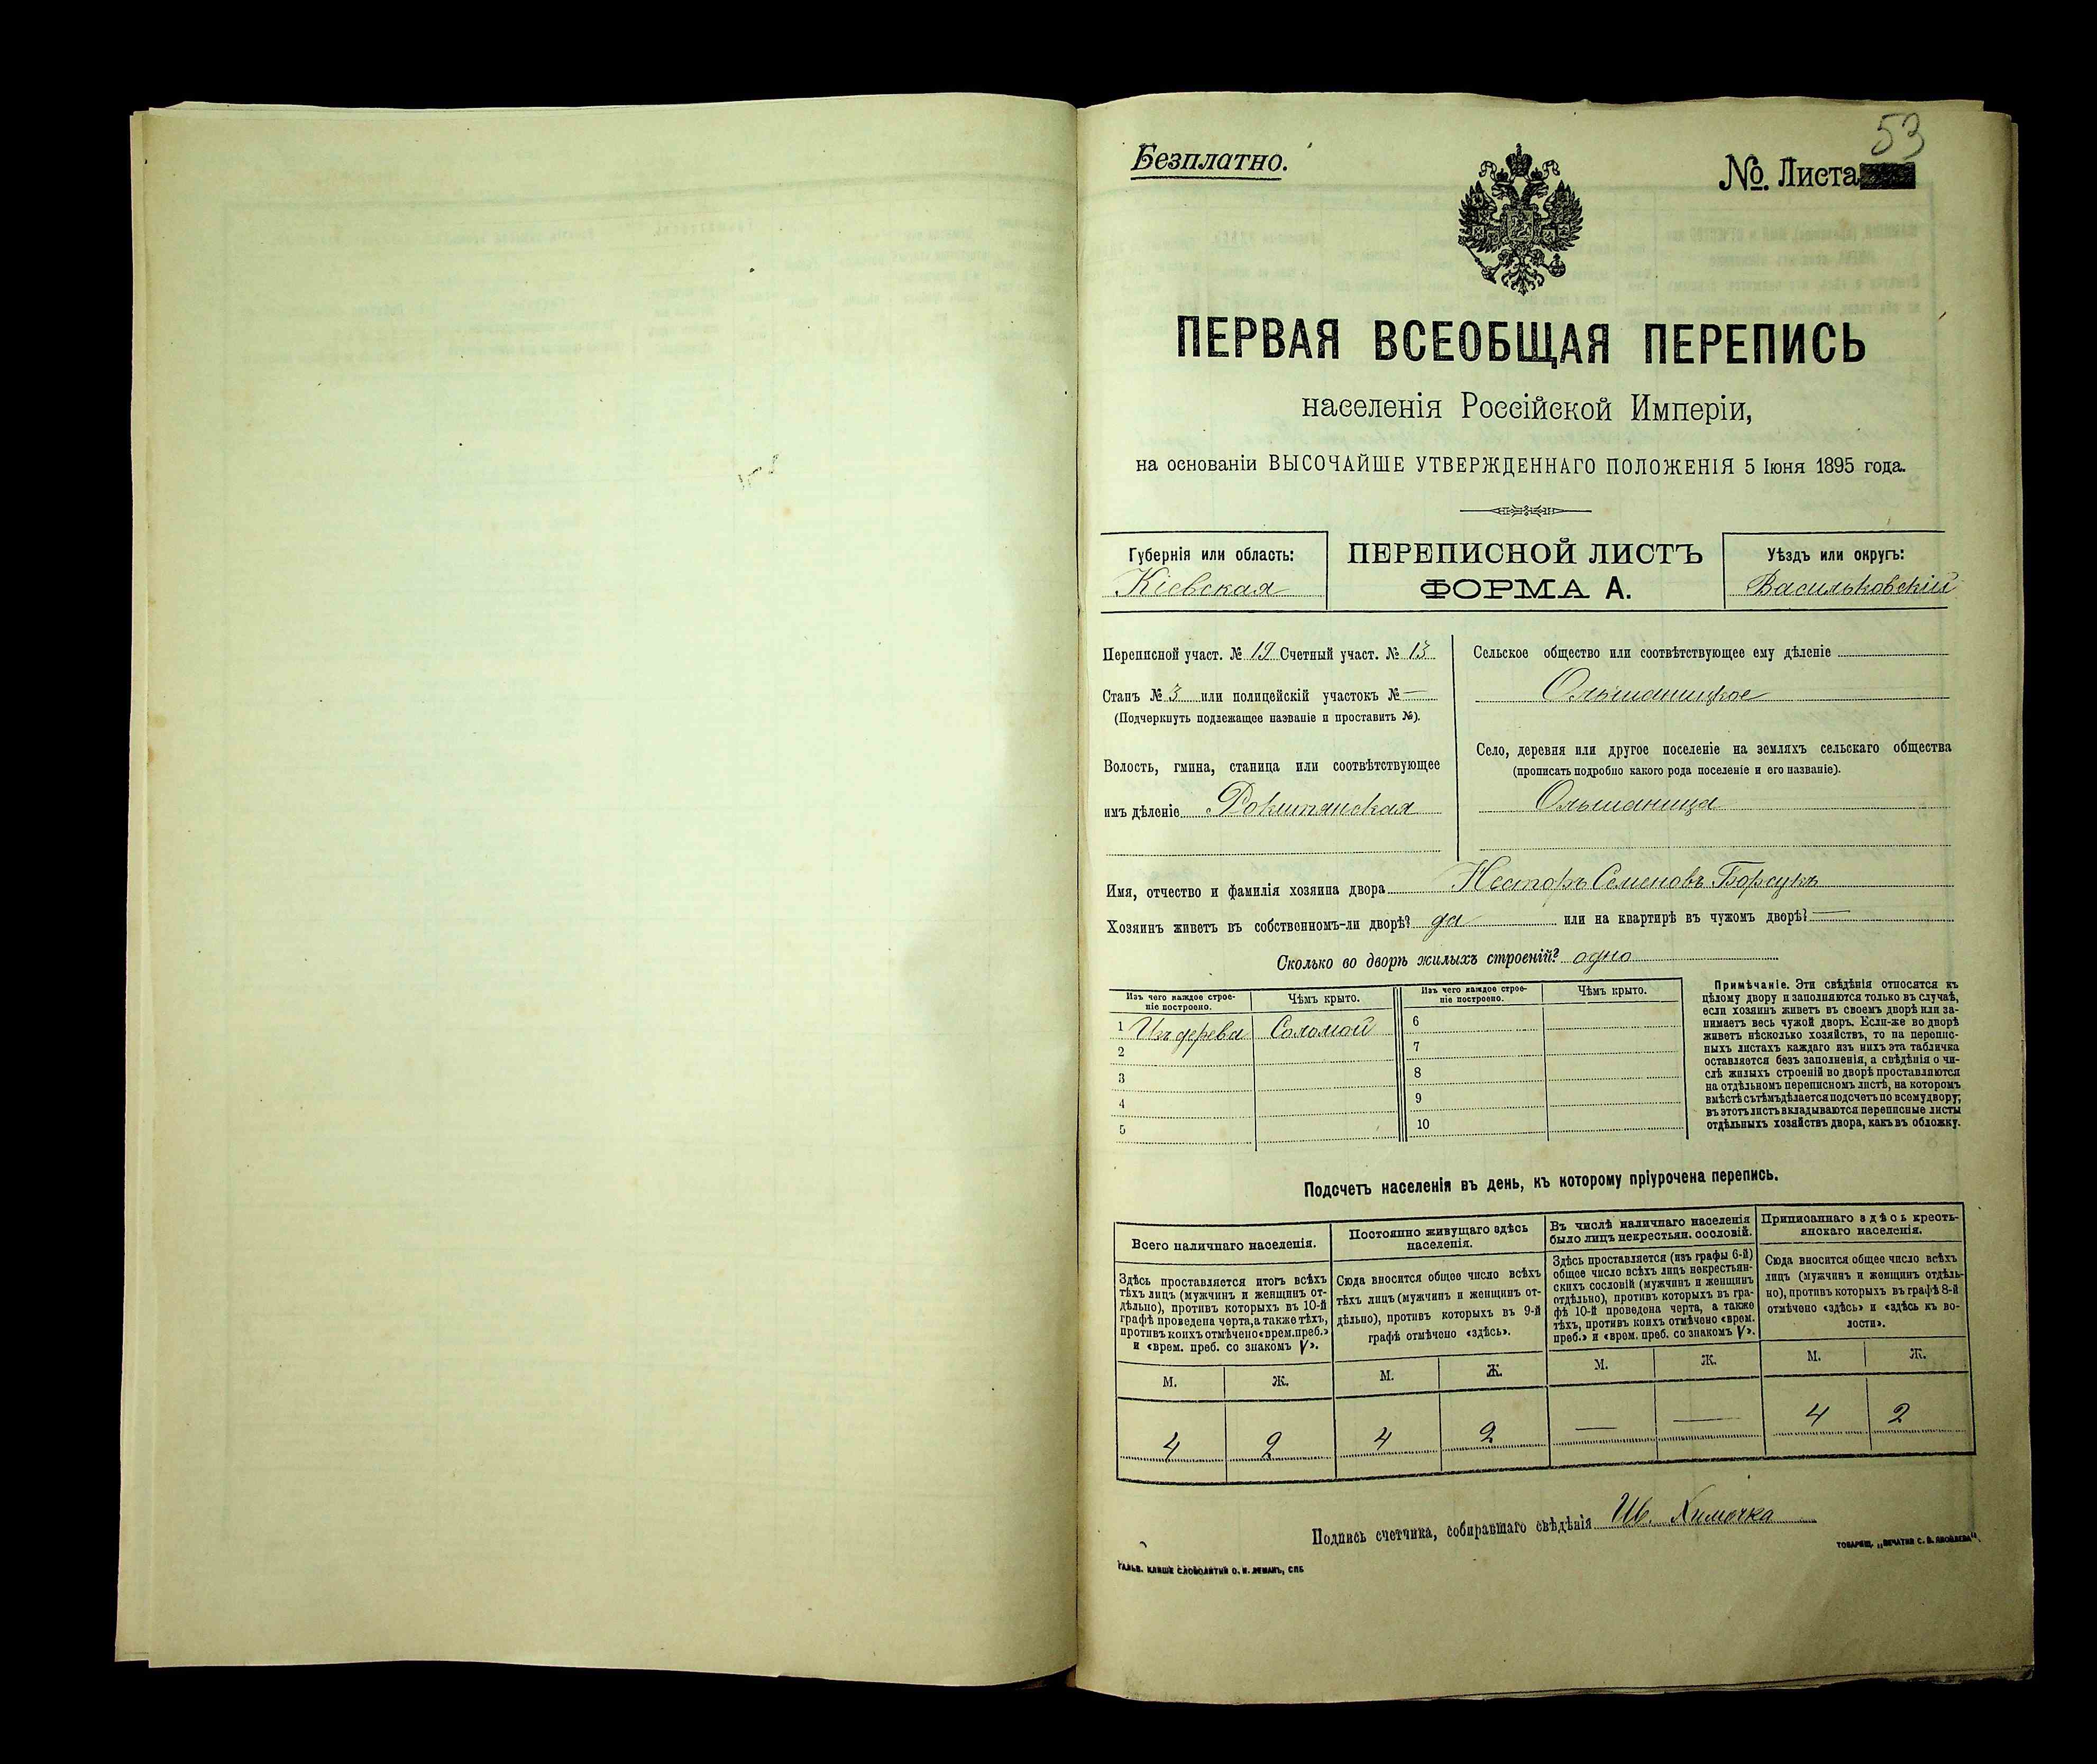 53
Безплатно.
№. Листа
ПЕРВАЯ ВСЕОБЩАЯ ПЕРЕПИСЬ
населенія Россійской Имперіи,
на основаніи ВЫСОЧАЙШЕ УТВЕРЖДЕННАГО ПОЛОЖЕНІЯ 5 Іюня 1895 года.
Губернія или область:
Кіевская
ПЕРЕПИСНОЙ ЛИСТЪ
ФОРМА А.
Уѣздъ или округъ:
Васильковскій
Переписной участ. № 19 Счетный участ. № 13
Станъ № 3 или полицейскій участокъ № —
(Подчеркнуть подлежащее названіе и проставить №).
Волость, гмина, станица или соотвѣтствующее
имъ дѣленіе Рокитянская
Сельское общество или соотвѣтствующее ему дѣленіе
Ольшаницкое
Село, деревня или другое поселеніе на земляхъ сельскаго общества
(прописать подробно какого рода поселеніе и его названіе).
Ольшаница
Имя, отчество и фамилія хозяина двора Несторъ Семеновъ Борсукъ
Хозяинъ живетъ въ собственномъ-ли дворѣ? да или на квартирѣ въ чужомъ дворѣ? —
Сколько во дворѣ жилыхъ строеній? одно
Изъ чего каждое строе-
ніе построено.
Чѣмъ крыто.
Изъ чего каждое строе-
ніе построено.
Чѣмъ крыто.
1 Изъ дерева Соломой 6
2 7
3 8
4 9
5 10
Примѣчаніе. Эти свѣдѣнія относятся къ
цѣлому двору и заполняются только въ случаѣ,
если хозяинъ живетъ въ своемъ дворѣ или за-
нимаетъ весь чужой дворъ. Если-же во дворѣ
живетъ нѣсколько хозяйствъ, то на перепис-
ныхъ листахъ каждаго изъ нихъ эта табличка
оставляется безъ заполненія, а свѣдѣнія о чи-
слѣ жилыхъ строеній во дворѣ проставляются
на отдѣльномъ переписномъ листѣ, на которомъ
вмѣстѣ съ тѣмъ дѣлается подсчетъ по всему двору;
въ этотъ листъ вкладываются переписные листы
отдѣльныхъ хозяйствъ двора, какъ въ обложку.
Подсчетъ населенія въ день, къ которому пріурочена перепись.
Всего наличнаго населенія.
Здѣсь проставляется итогъ всѣхъ
тѣхъ лицъ (мужчинъ и женщинъ от-
дѣльно), противъ которыхъ въ 10-й
графѣ проведена черта, а также тѣхъ,
противъ коихъ отмѣчено «врем. преб.»
и «врем. преб. со знакомъ V».
М. Ж.
4 2
Постоянно живущаго здѣсь
населенія.
Сюда вносится общее число всѣхъ
тѣхъ лицъ (мужчинъ и женщинъ от-
дѣльно), противъ которыхъ въ 9-й
графѣ отмѣчено «здѣсь».
М. Ж.
4 2
Въ числѣ наличнаго населенія
было лицъ некрестьян. сословій.
Здѣсь проставляется (изъ графы 6-й)
общее число всѣхъ лицъ некрестьян-
скихъ сословій (мужчинъ и женщинъ
отдѣльно), противъ которыхъ въ гра-
фѣ 10-й проведена черта, а также
тѣхъ, противъ коихъ отмѣчено «врем.
преб.» и «врем. преб. со знакомъ V».
М. Ж.
— —
Приписаннаго здѣсь кресть-
янскаго населенія.
Сюда вносится общее число всѣхъ
лицъ (мужчинъ и женщинъ отдѣль-
но), противъ которыхъ въ графѣ 8-й
отмѣчено «здѣсь» и «здѣсь къ во-
лости».
М. Ж.
4 2
Подпись счетчика, собиравшаго свѣдѣнія Ив. Химочка
ГАЛЬВ. КЛИШЕ СЛОВОЛИТНИ О. И. ЛЕМАНЪ, СПБ
ТОВАРИЩ. „ПЕЧАТНЯ С. П. ЯКОВЛЕВА".